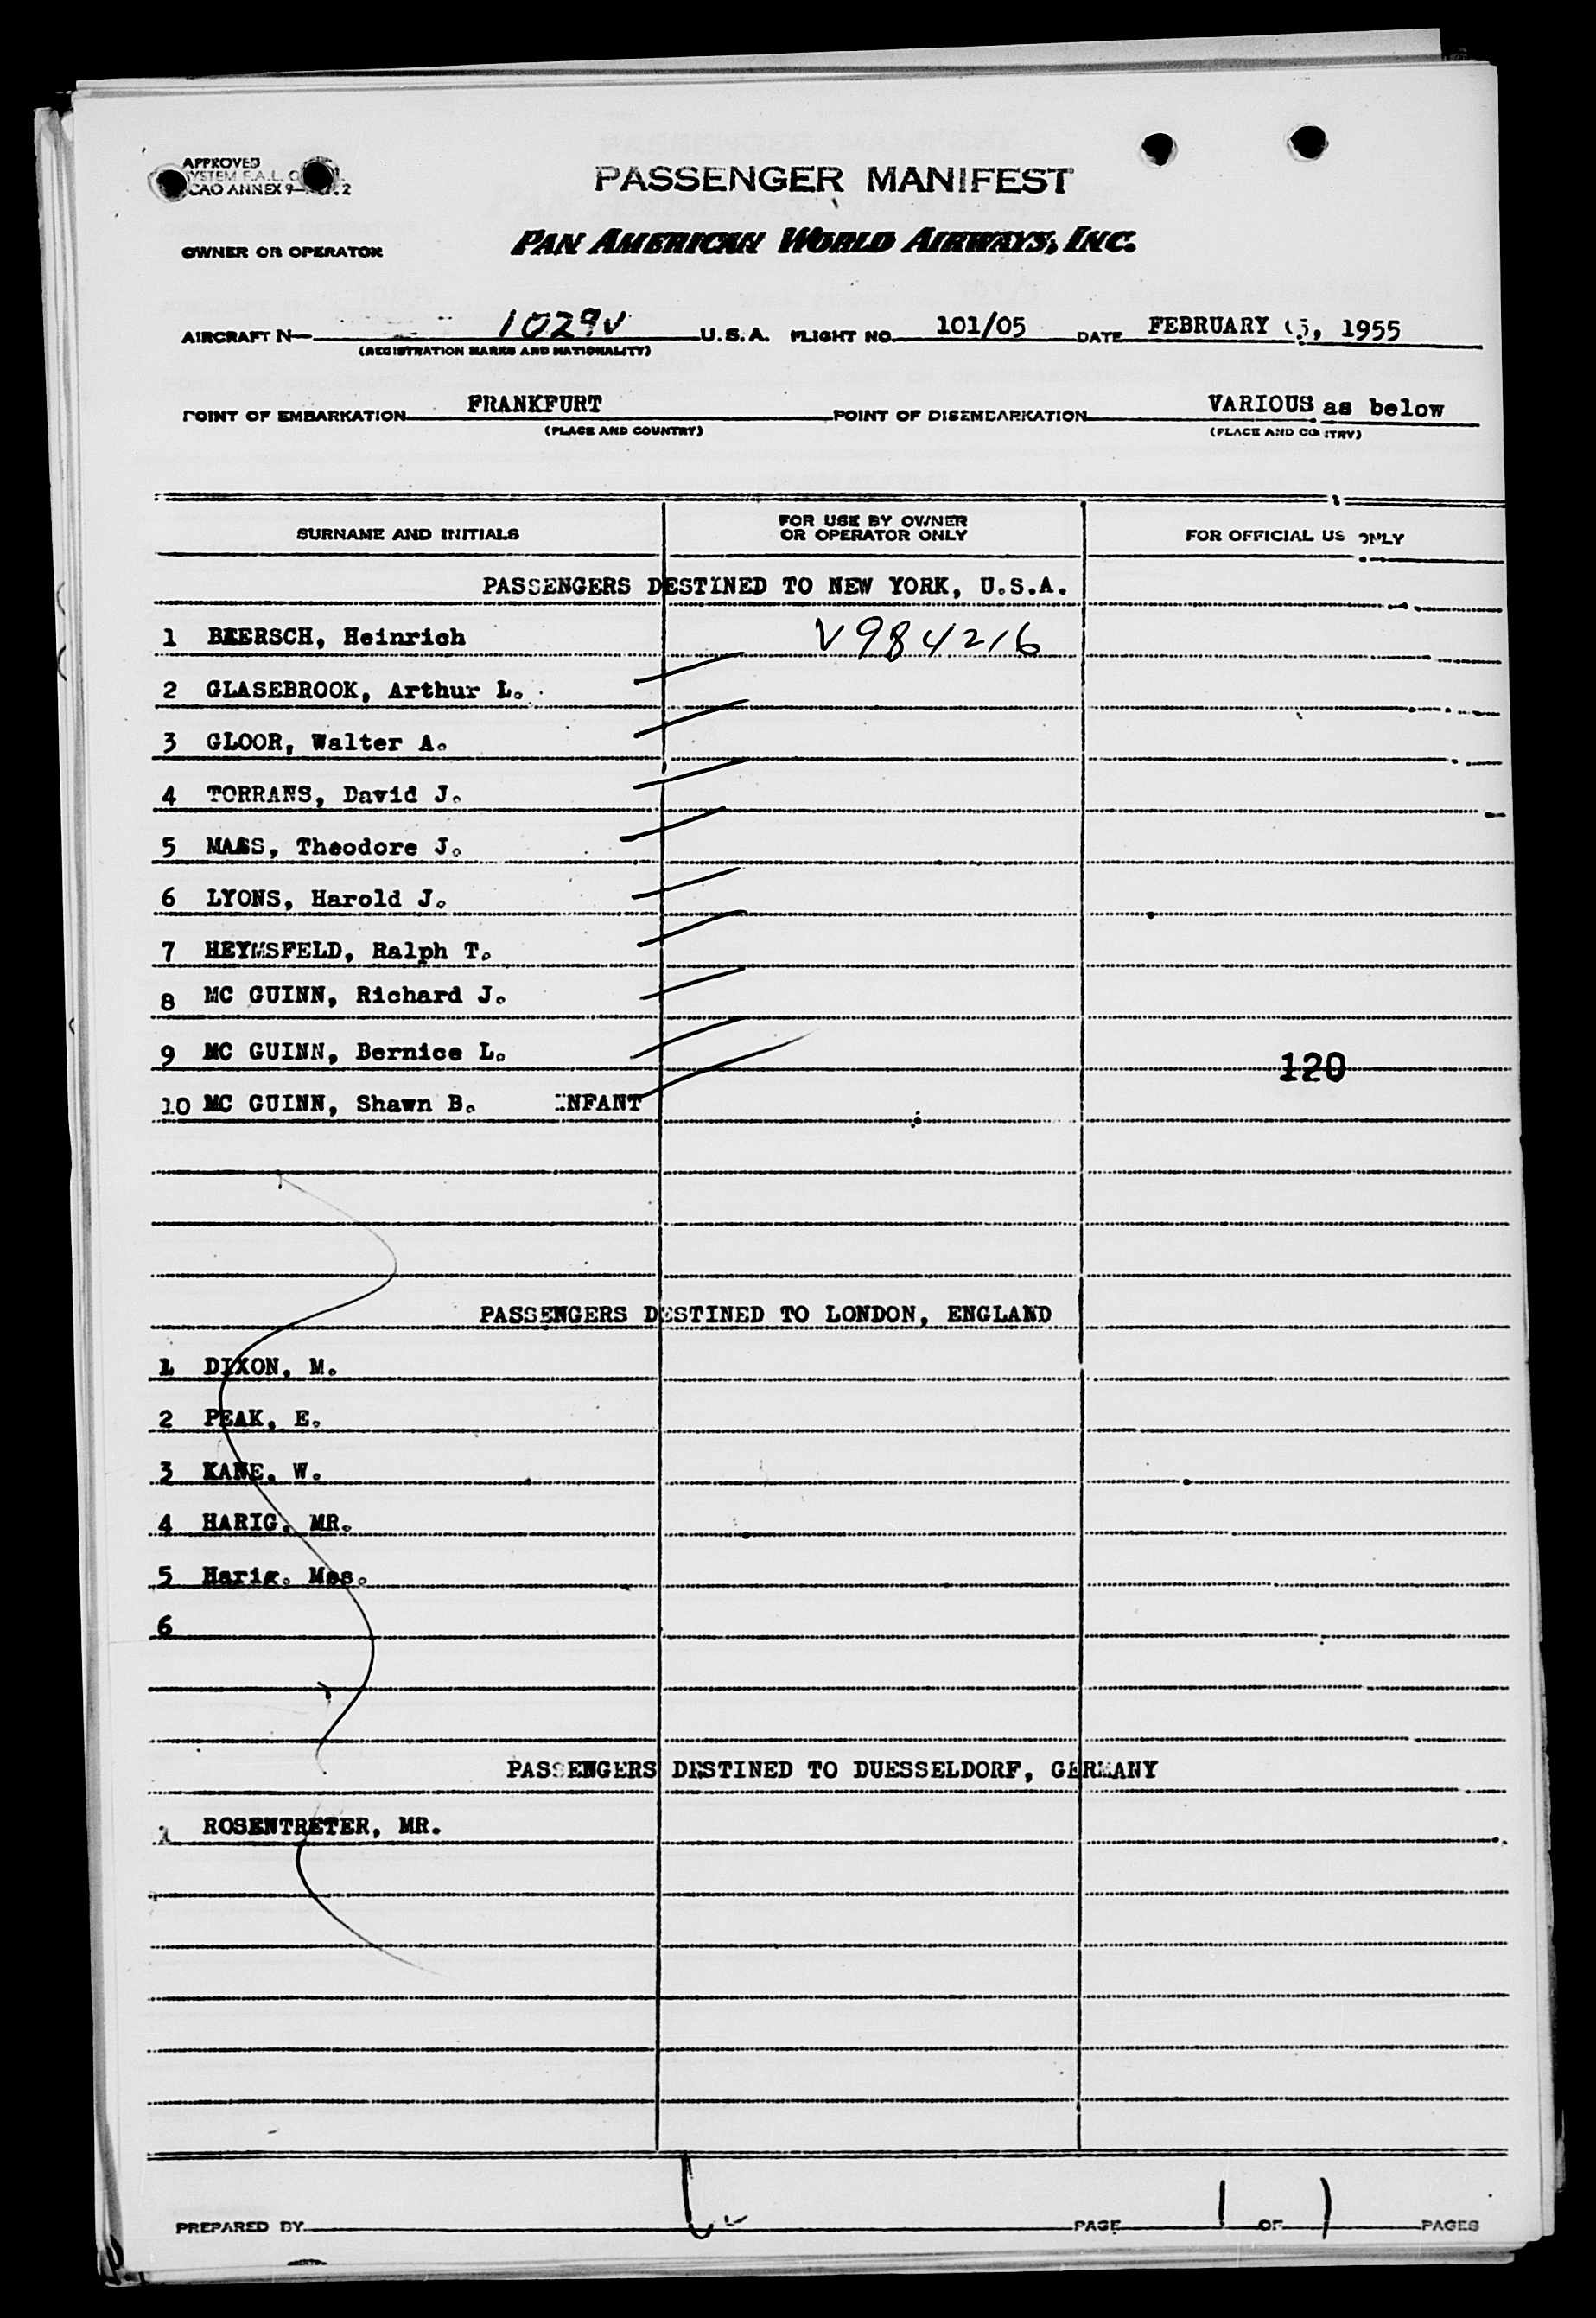 APPROVED
SYSTEM F.A.L.
ICAO ANNEX 9
PASSENGER MANIFEST
OWNER OR OPERATOR PAN AMERICAN WORLD AIRWAYS, INC.
AIRCRAFT N 1029V U.S.A. FLIGHT NO. 101/05 DATE FEBRUARY 1955
(REGISTRATION MARKS AND NATIONALITY)
POINT OF EMBARKATION FRANKFURT POINT OF DISEMBARKATION VARIOUS as below
(PLACE AND COUNTRY) (PLACE AND COUNTRY)
SURNAME AND INITIALS FOR USE BY OWNER OR OPERATOR ONLY FOR OFFICIAL USE ONLY
PASSENGERS DESTINED TO NEW YORK, U.S.A.
1 Heinrich V984216
2 GLASEBROOK, Arthur L.
3 GLOOR, Walter A.
4 TORRANS, David J.
5 MAAS, Theodore J.
6 LYONS, Harold J.
7 HEYMSFELD, Ralph T.
8 MC GUINN, Richard J.
9 MC GUINN, Bernice L.
120
10 MC GUINN, Shawn B. INFANT
PASSENGERS DESTINED TO LONDON, ENGLAND
1 DIXON, M.
2 PEAK, E.
3 KANE, W.
4 HARIG, MR.
5 Harig. Mes.
6
PASSENGERS DESTINED TO DUESSELDORF, GERMANY
1 ROSENTRETER, MR.
PREPARED BY PAGE 1 OF 1 PAGES